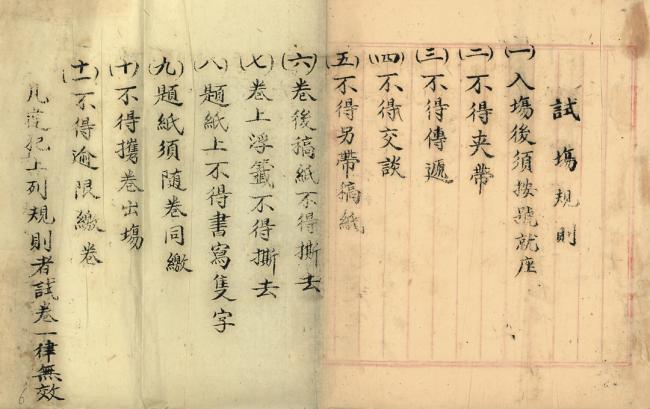 試塲規則
(一)入塲後須按號就座
(二)不得夾帶
(三)不得傳遞
(四)不得交談
(五)不得另帶稿紙
(六)卷後稿紙不得撕去
(七)卷上浮籤不得撕去
(八)題紙上不得書寫隻字
(九)題紙須隨卷同繳
(十)不得攜卷出塲
(十一)不得逾限繳卷
凡違犯上列規則者試卷一律無效